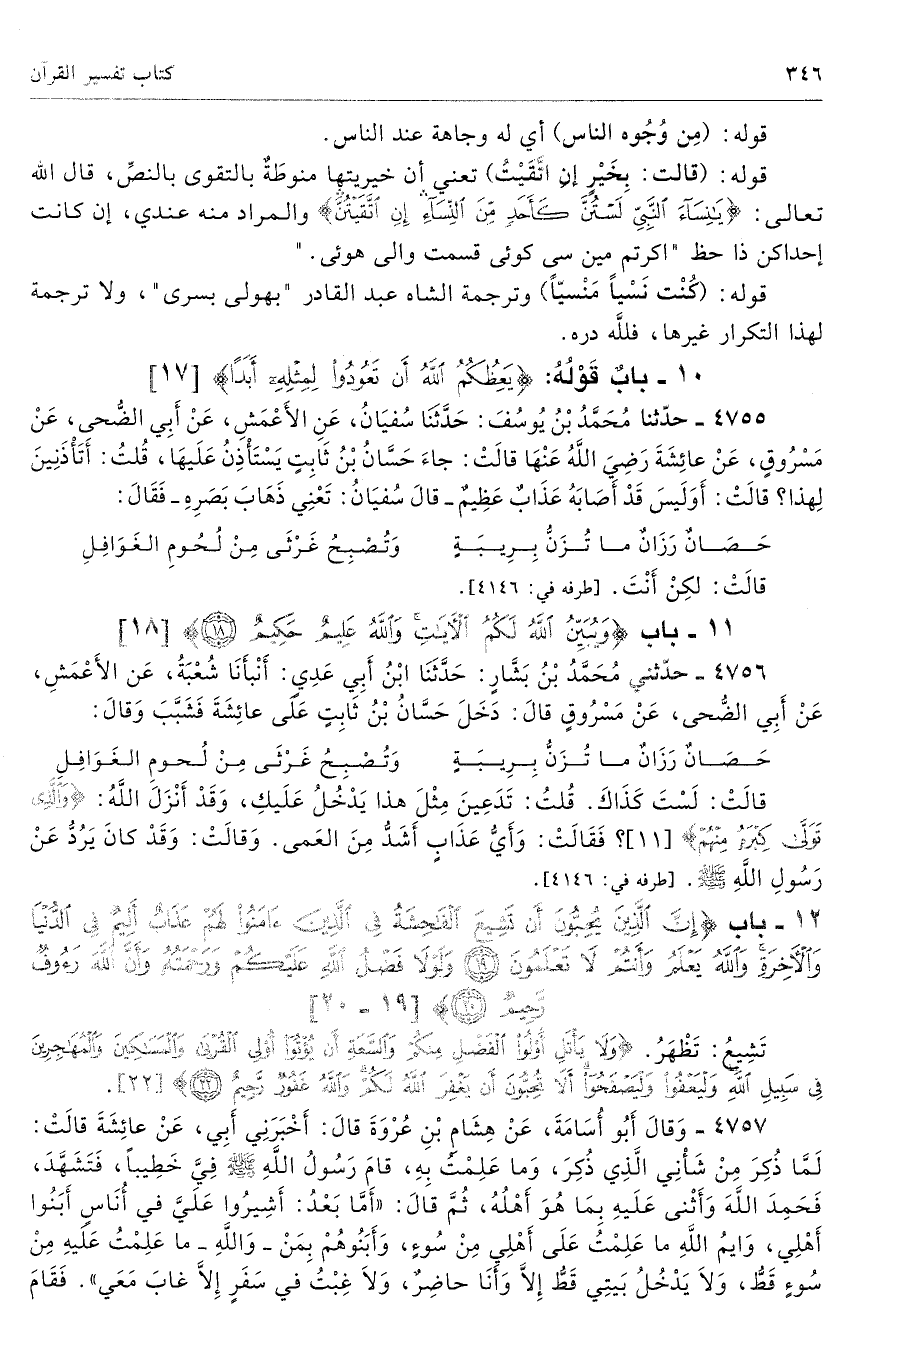 ٣٤٦ كتاب تفسير القرآن
قوله: (مِن وُجُوه الناس) أي له وجاهة عند الناس.
قوله: (قالت: بِخَيْرٍ إنِ اتَّقَيْتُ) تعني أن خيريتها منوطَةٌ بالتقوى بالنصِّ، قال الله
تعالى: ﴿يَٰنِسَآءَ ٱلنَّبِيِّ لَسۡتُنَّ كَأَحَدٖ مِّنَ ٱلنِّسَآءِ إِنِ ٱتَّقَيۡتُنَّ﴾ والمراد منه عندي، إن كانت
إحداكن ذا حظ "اكرتم مين سى كوئى قسمت والى هوئى."
قوله: (كُنْت نَسْياً مَنْسيّاً) وترجمة الشاه عبد القادر "بهولى بسرى"، ولا ترجمة
لهذا التكرار غيرها، فللَّه دره.
١٠ ـ بابٌ قَوْلُهُ: ﴿يَعِظُكُمُ ٱللَّهُ أَن تَعُودُواْ لِمِثۡلِهِۦٓ أَبَدًا﴾ [١٧]
٤٧٥٥ ـ حدّثنا مُحَمَّدُ بْنُ يُوسُفَ: حَدَّثَنَا سُفيَانُ، عَنِ الأَعْمَشِ، عَنْ أَبِي الضُّحى، عَنْ
مَسْرُوقٍ، عَنْ عائِشَةَ رَضِيَ اللَّهُ عَنْهَا قالَتْ: جاءَ حَسَّانُ بْنُ ثَابِتٍ يَسْتَأْذِنُ عَلَيهَا، قُلتُ: أَتَأْذَنِينَ
لِهذا؟ قالَتْ: أَوَلَيسَ قَدْ أَصَابَهُ عَذَابٌ عَظِيمٌ ـ قالَ سُفيَانُ: تَعْنِي ذَهَابَ بَصَرِهِ ـ فَقَالَ:
حَــصَــانٌ رَزَانٌ مــا تُــزَنُّ بِــرِيــبَــةٍ وَتُصْبِحُ غَرْثَى مِنْ لُحُومِ الغَوَافِلِ
قالَتْ: لكِنْ أَنْتَ. [طرفه في: ٤١٤٦].
١١ ـ باب ﴿وَيُبَيِّنُ ٱللَّهُ لَكُمُ ٱلۡأٓيَٰتِۚ وَٱللَّهُ عَلِيمٌ حَكِيمٌ ١٨﴾ [١٨]
٤٧٥٦ ـ حدّثني مُحَمَّدُ بْنُ بَشَّارٍ: حَدَّثَنَا ابْنُ أَبِي عَدِي: أَنْبَأَنَا شُعْبَةُ، عَنِ الأَعْمَشِ،
عَنْ أَبِي الضُّحى، عَنْ مَسْرُوقٍ قالَ: دَخَلَ حَسَّانُ بْنُ ثَابِتٍ عَلَى عائِشَةَ فَشَبَّبَ وَقالَ:
حَــصَــانٌ رَزَانٌ مــا تُــزَنُّ بِــرِيــبَــةٍ وَتُصْبِحُ غَرْثَى مِنْ لُحومِ الغَوَافِلِ
قالَتْ: لَسْتَ كَذَاكَ. قُلتُ: تَدَعِينَ مِثْلَ هذا يَدْخُلُ عَلَيكِ، وَقَدْ أَنْزَلَ اللَّهُ: ﴿وَٱلَّذِي
تَوَلَّىٰ كِبۡرَهُۥ مِنۡهُمۡ﴾ [١١]؟ فَقَالَتْ: وَأَيُّ عَذَابٍ أَشَدُّ مِنَ العَمى. وَقالَتْ: وَقَدْ كانَ يَرُدُّ عَنْ
رَسُولِ اللَّهِ ﷺ. [طرفه في: ٤١٤٦].
١٢ ـ باب ﴿إِنَّ ٱلَّذِينَ يُحِبُّونَ أَن تَشِيعَ ٱلۡفَٰحِشَةُ فِي ٱلَّذِينَ ءَامَنُواْ لَهُمۡ عَذَابٌ أَلِيمٞ فِي ٱلدُّنۡيَا
وَٱلۡأٓخِرَةِۚ وَٱللَّهُ يَعۡلَمُ وَأَنتُمۡ لَا تَعۡلَمُونَ ١٩ وَلَوۡلَا فَضۡلُ ٱللَّهِ عَلَيۡكُمۡ وَرَحۡمَتُهُۥ وَأَنَّ ٱللَّهَ رَءُوفٞ
رَّحِيمٞ ٢٠﴾ [١٩ ـ ٢٠]
تَشِيعُ: تَظْهَرُ. ﴿وَلَا يَأۡتَلِ أُوْلُواْ ٱلۡفَضۡلِ مِنكُمۡ وَٱلسَّعَةِ أَن يُؤۡتُوٓاْ أُوْلِي ٱلۡقُرۡبَىٰ وَٱلۡمَسَٰكِينَ وَٱلۡمُهَٰجِرِينَ
فِي سَبِيلِ ٱللَّهِۖ وَلۡيَعۡفُواْ وَلۡيَصۡفَحُوٓاْۗ أَلَا تُحِبُّونَ أَن يَغۡفِرَ ٱللَّهُ لَكُمۡۚ وَٱللَّهُ غَفُورٞ رَّحِيمٌ ٢٢﴾ [٢٢].
٤٧٥٧ ـ وَقالَ أَبُو أُسَامَةَ، عَنْ هِشَامِ بْنِ عُرْوَةَ قالَ: أَخْبَرَنِي أَبِي، عَنْ عائِشَةَ قالَتْ:
لَمَّا ذُكِرَ مِنْ شَأْنِي الَّذِي ذُكِرَ، وَما عَلِمْتُ بِهِ، قامَ رَسُولُ اللَّهِ ﷺ فِيَّ خَطِيباً، فَتَشَهَّدَ،
فَحَمِدَ اللَّهَ وَأَثْنى عَلَيهِ بِمَا هُوَ أَهْلُهُ، ثُمَّ قالَ: «أَمَّا بَعْدُ: أَشِيرُوا عَلَيَّ في أُنَاسٍ أَبَنُوا
أَهْلِي، وَايمُ اللَّهِ ما عَلِمْتُ عَلَى أَهْلِي مِنْ سُوءٍ، وَأَبَنُوهُمْ بِمَنْ ـ وَاللَّهِ ـ ما عَلِمْتُ عَلَيهِ مِنْ
سُوءٍ قَطُّ، وَلاَ يَدْخُلُ بَيتِي قَطُّ إِلاَّ وَأَنَا حاضِرٌ، وَلاَ غِبْتُ في سَفَرٍ إِلاَّ غابَ مَعَي». فَقَامَ